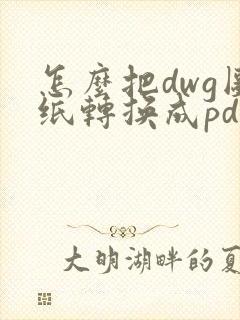 怎麼把dwg圖
纸轉換成pd
大明湖畔的夏